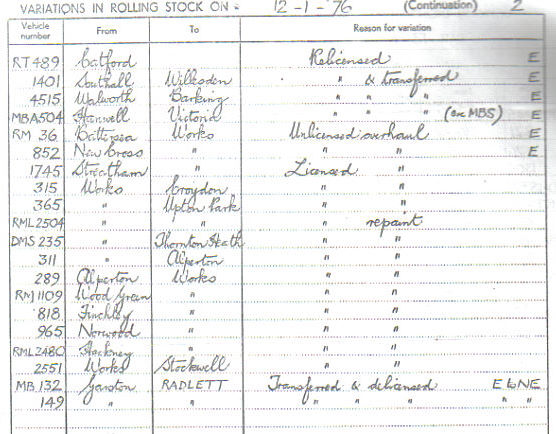 VARIATIONS IN ROLLING STOCK ON - 12-1-76 (Continuation) 2
Vehicle number From To Reason for variation
RT 489 Catford Relicensed E
1401 Southall Willesden " & transferred E
4515 Walworth Barking " " " E
MBA504 Hanwell Victoria " " " (exc MBS) E
RM 36 Battersea Works Unlicensed overhaul E
852 New Cross " " " E
1745 Streatham " Licensed "
315 Works Croydon " "
365 " Upton Park " "
RML2504 " " " repaint
DMS 235 " Thornton Heath " "
311 " Alperton " "
289 Alperton Works " "
RM 1109 Wood Green " " "
818 Finchley " " "
965 Norwood " " "
RML2480 Hackney " " "
2551 Works Stockwell " "
MB 132 Garston RADLETT Transferred & delicensed E to NE
149 " " " " " " "